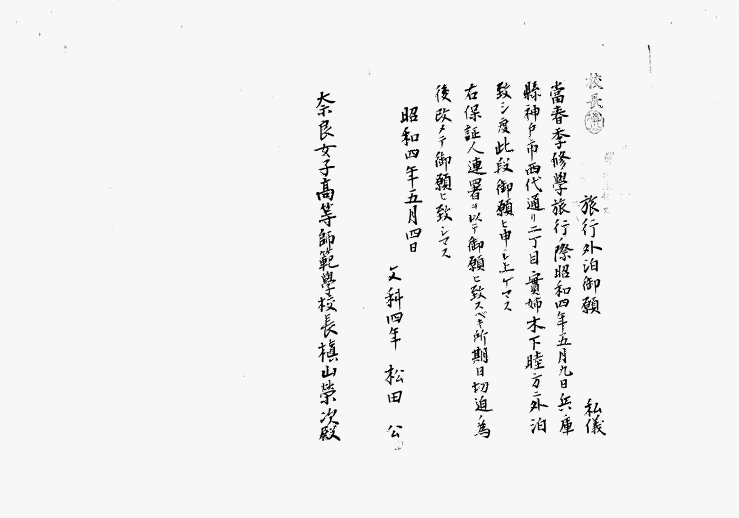 校長
旅行外泊御願
私儀
當春季修學旅行ノ際昭和四年五月九日兵庫
縣神戸市西代通リ二丁目實姉木下睦方ニ外泊
致シ度此段御願ヒ申シ上ゲマス
右保証人連署ヲ以テ御願ヒ致スベキ所期日切迫ノ為
後改メテ御願ヒ致シマス
昭和四年五月四日
文科四年 松田 公
奈良女子高等師範學校長槇山榮次殿